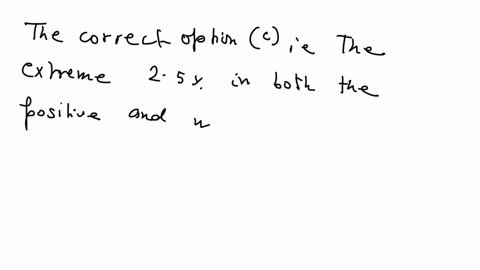 The correct option (c) i.e The
extreme 2.5%. in both the
positive and n